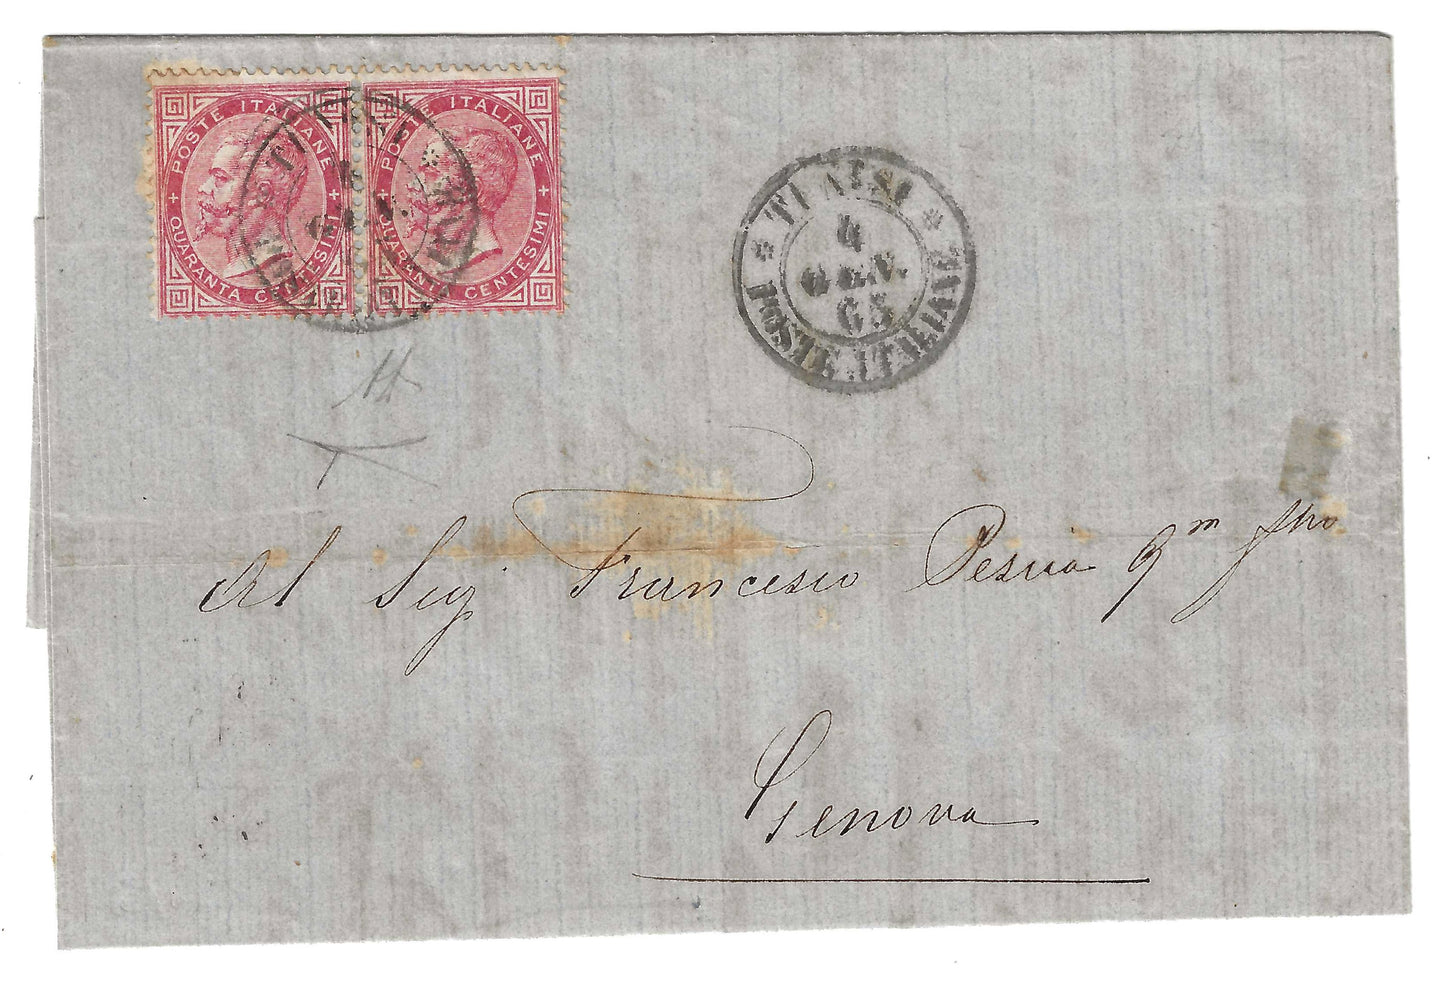 POSTE ITALIANE
QUARANTA CENTESIMI
POSTE ITALIANE
QUARANTA CENTESIMI
TUNISI
4
GEN.
65
POSTE ITALIANE
Al Sig. Francesco
Genova